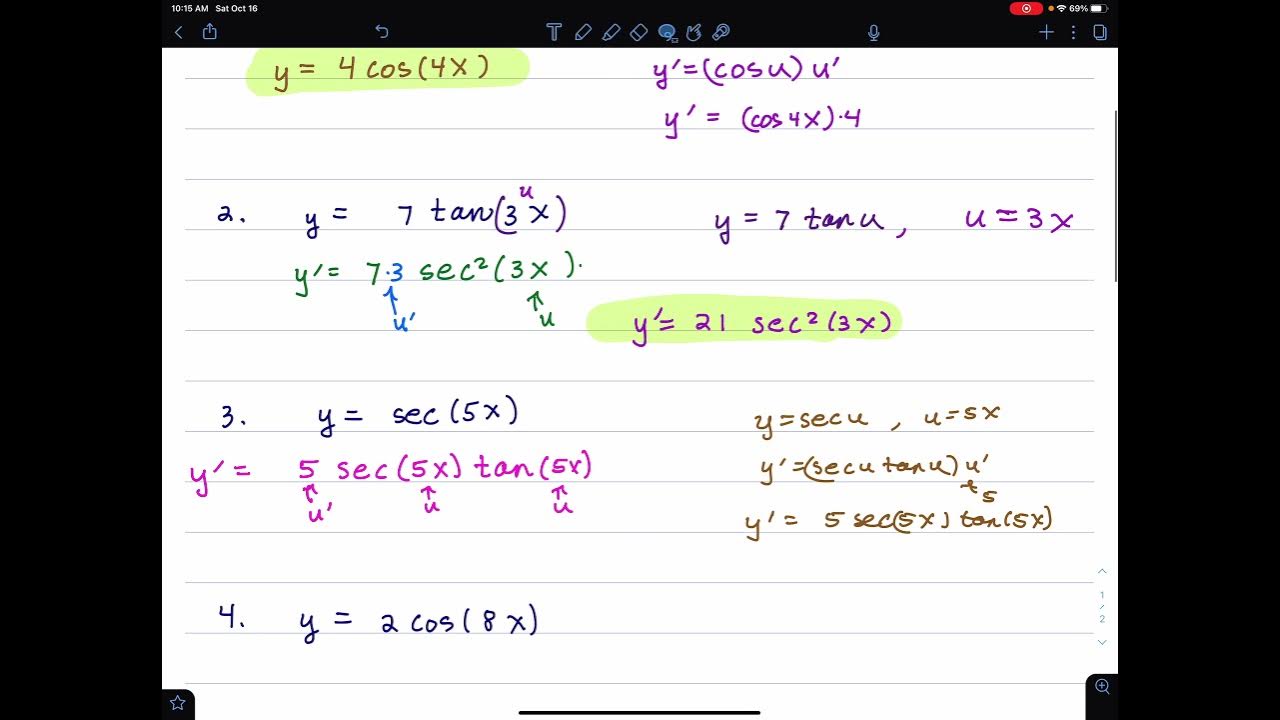 10:15 AM Sat Oct 16
69%
T
y = 4 cos(4x)
y' = (cos u) u'
y' = (cos 4x) · 4
2. y = 7 tan(3x)
u
y = 7 tan u, u = 3x
y' = 7·3 sec²(3x).
u' u
y' = 21 sec²(3x)
3. y = sec(5x)
y = sec u, u = 5x
y' = 5 sec(5x) tan(5x)
u' u u
y' = (sec u tan u) u'
5
y' = 5 sec(5x) tan(5x)
4. y = 2 cos(8x)
1
/
2